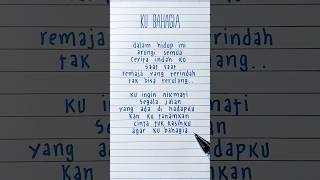 KU BAHAGIA
dalam hidup ini
arungi semua
cerita indah ku
saat saat
remaja yang terindah
tak bisa terulang..
ku ingin nikmati
segala jalan
yang ada di hadapku
kan ku tanamkan
cinta tuk kasihku
agar ku bahagia..
remaja
tak
yang ada di hadapku
kan ku